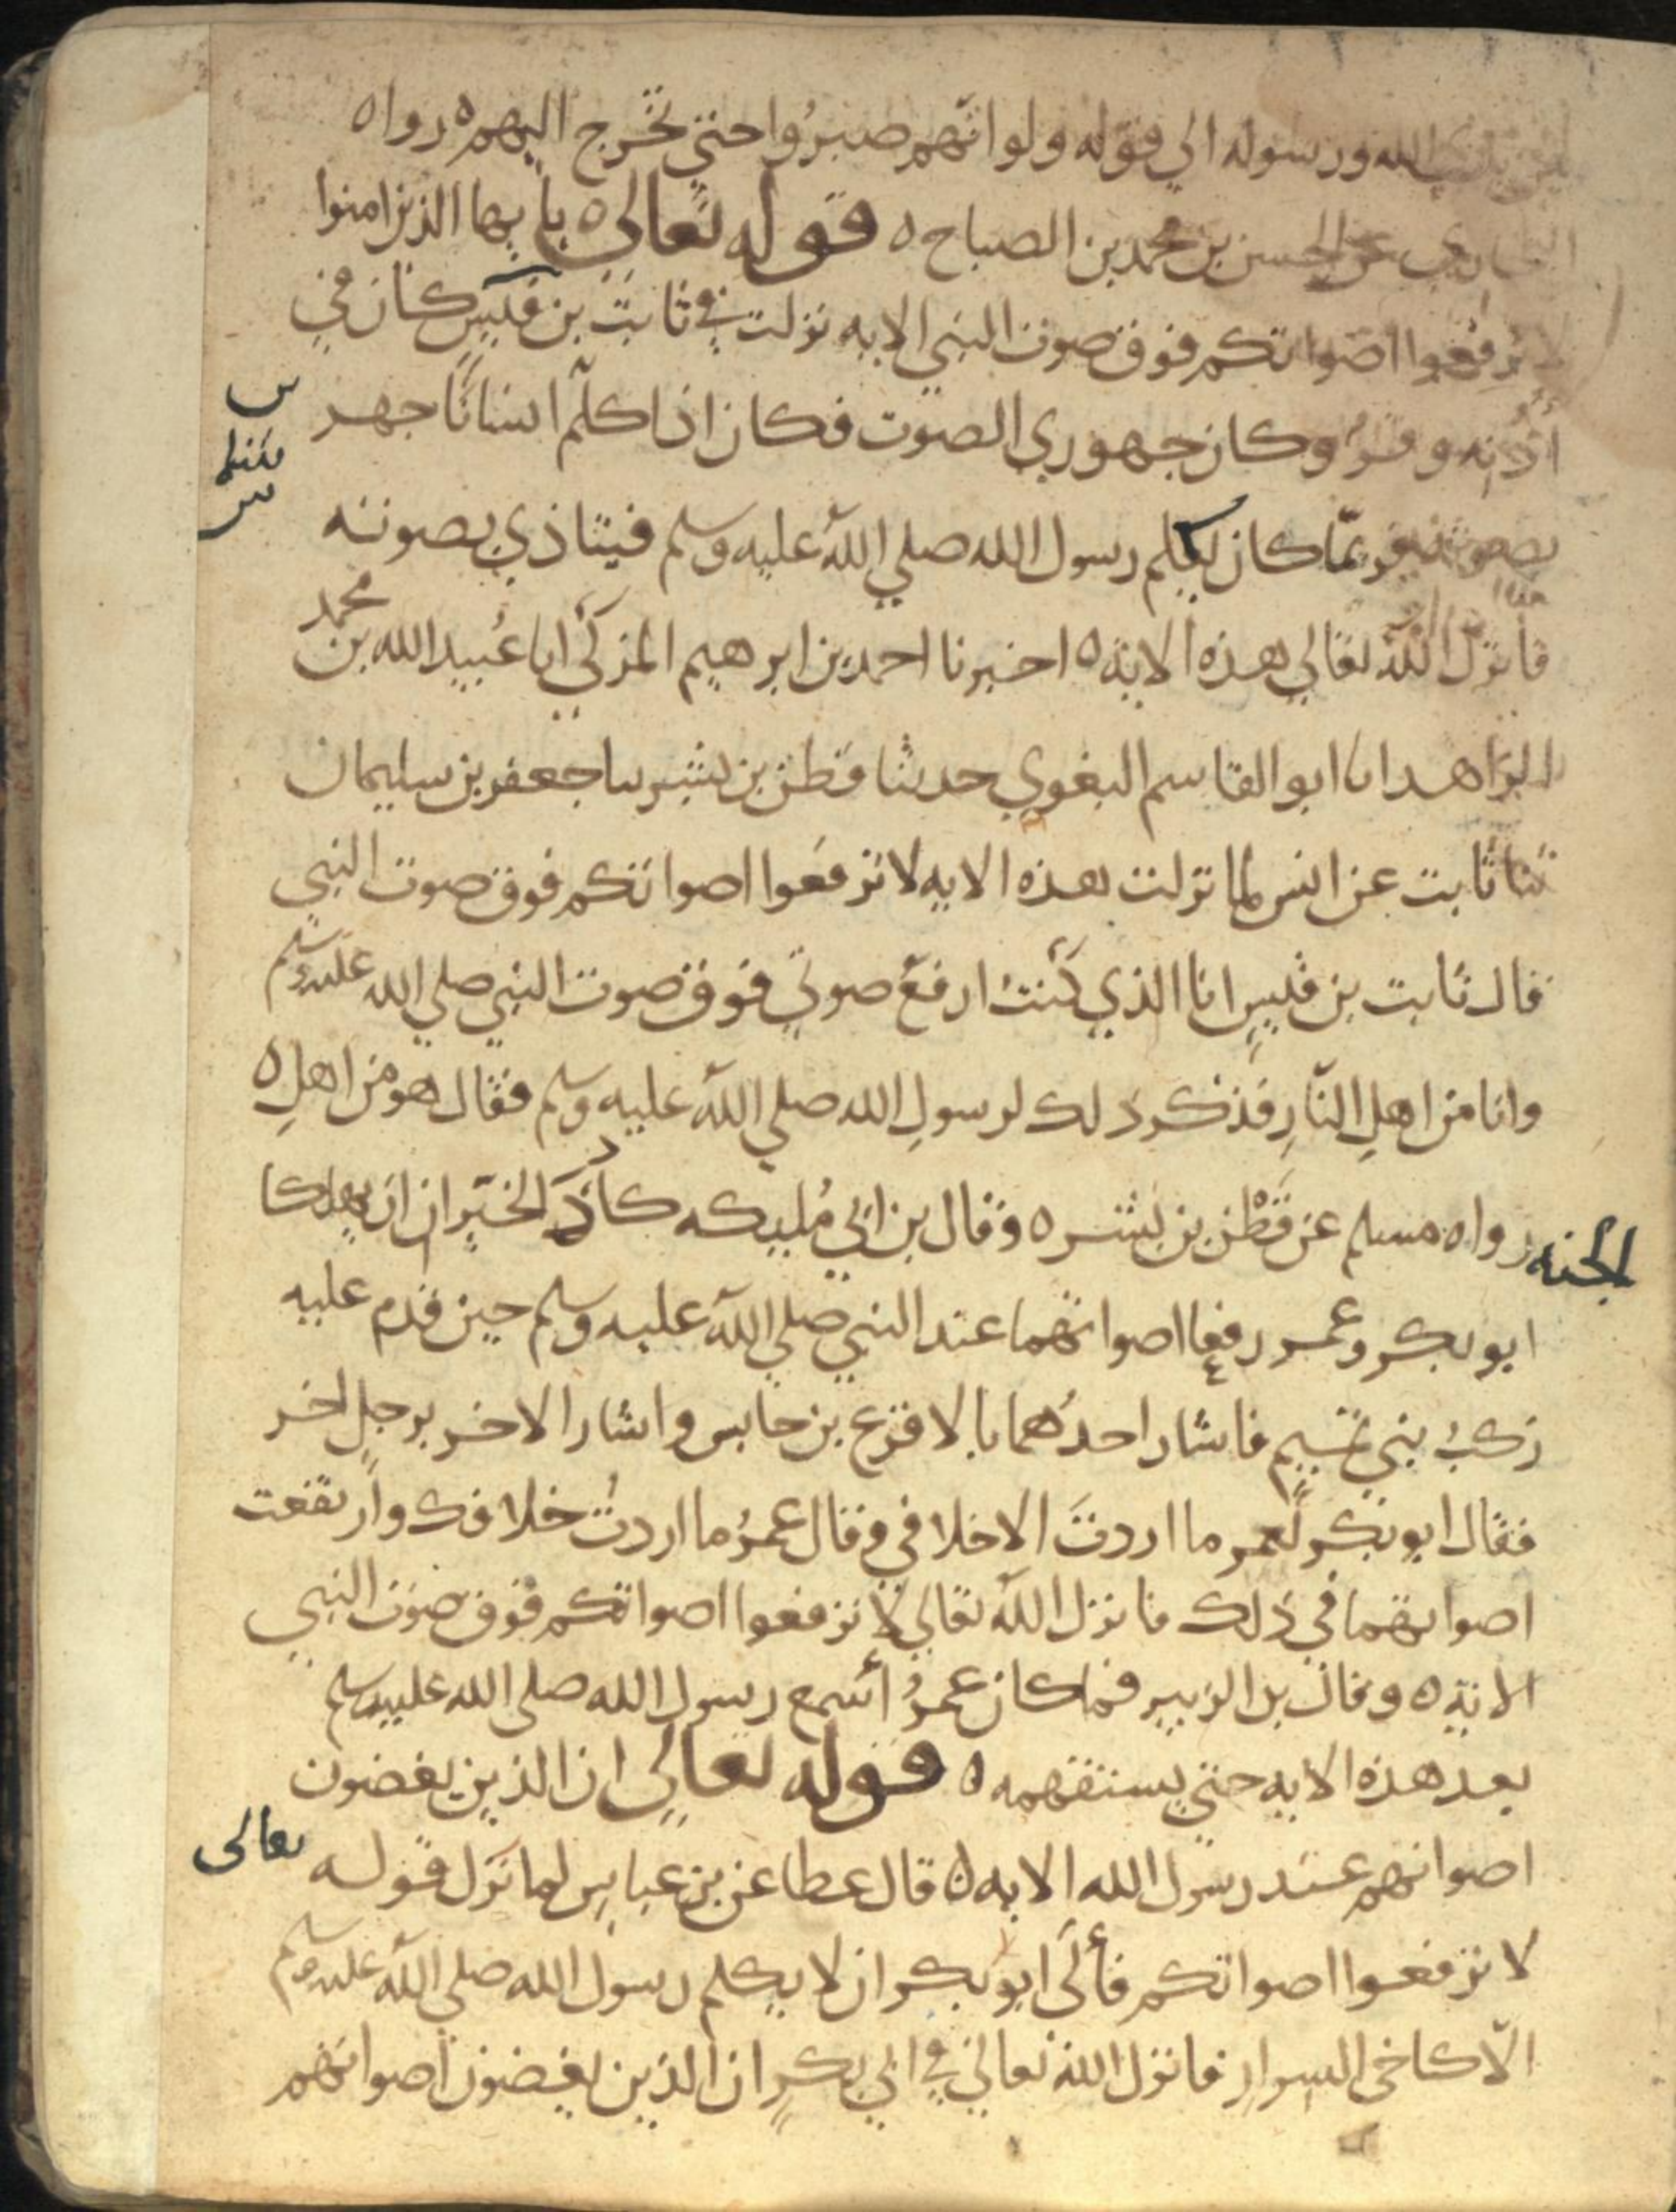 يدي الله ورسوله الي قوله ولو انهم صبرُوا حتي تخرج اليهم ه رواه
البخاري عن الحسن بن محمد بن الصباح ه قوله تعالي ه يا يها الذين امنوا
لا ترفعوا اصواتكم فوق صوت النبي الايه نزلت في ثابت بن قيس كان في
أذنه وقرٌ وكان جهوري الصوت فكان اذا كلّم انسانًا جهر
بصوته فربمّا كان يكلم رسول الله صلي الله عليه وسلم فيتاذي بصوته
فانزل الله تعالي هذه الاية ه اخبرنا احمد بن ابرهيم المزكي انا عُبيد الله بن محمد
الزاهد انا ابو القاسم البغوي حدثنا قطن بن بشير سا جعفر بن سليمان
ثنا ثابت عن انس لما نزلت هذه الايه لا ترفعوا اصواتكم فوق صوت النبي
قال ثابت بن قيسٍ انا الذي كنتُ ارفع صوتي فوق صوت النبي صلي الله عليه وسلم
وانا من اهلِ النّارِ فذكر ذلك لرسولِ الله صلي الله عليه وسلم فقال هو من اهلِ ه
الجنه رواه مسلم عن قَطْن بن بشر ه وقال بن ابي مُليكه كادَ الخيّرانِ ان يهلكا
ابو بكر وعمر رفعا اصواتهما عند النبي صلي الله عليه وسلم حين قدم عليه
ركبُ بني تميم فاشار احدُهما بالاقرع بن حابس واشار الاخر برجلٍ اخر
فقال ابو بكر لعمر ما اردتَ الا خلافي وقال عمرُ ما اردتُ خلافك وارتفعت
اصواتهما في ذلك فانزل الله تعالي لا ترفعوا اصواتكم فوق صوت النبي
الاية ه وقال بن الزبير فما كان عمرُ أسمع رسول الله صلي الله عليه وسلم
بعد هذه الايه حتي يستفهمه ه قوله تعالي ان الذين يغضون
اصواتهم عند رسول الله الايه ه قال عطا عن بن عباسٍ لما نزل قوله تعالى
لا ترفعوا اصواتكم فألَى ابو بكر ان لا يكلم رسول الله صلي الله عليه وسلم
الّا كاخي السرار فانزل الله تعالي في ابي بكرٍ ان الذين يغضون اصواتهم